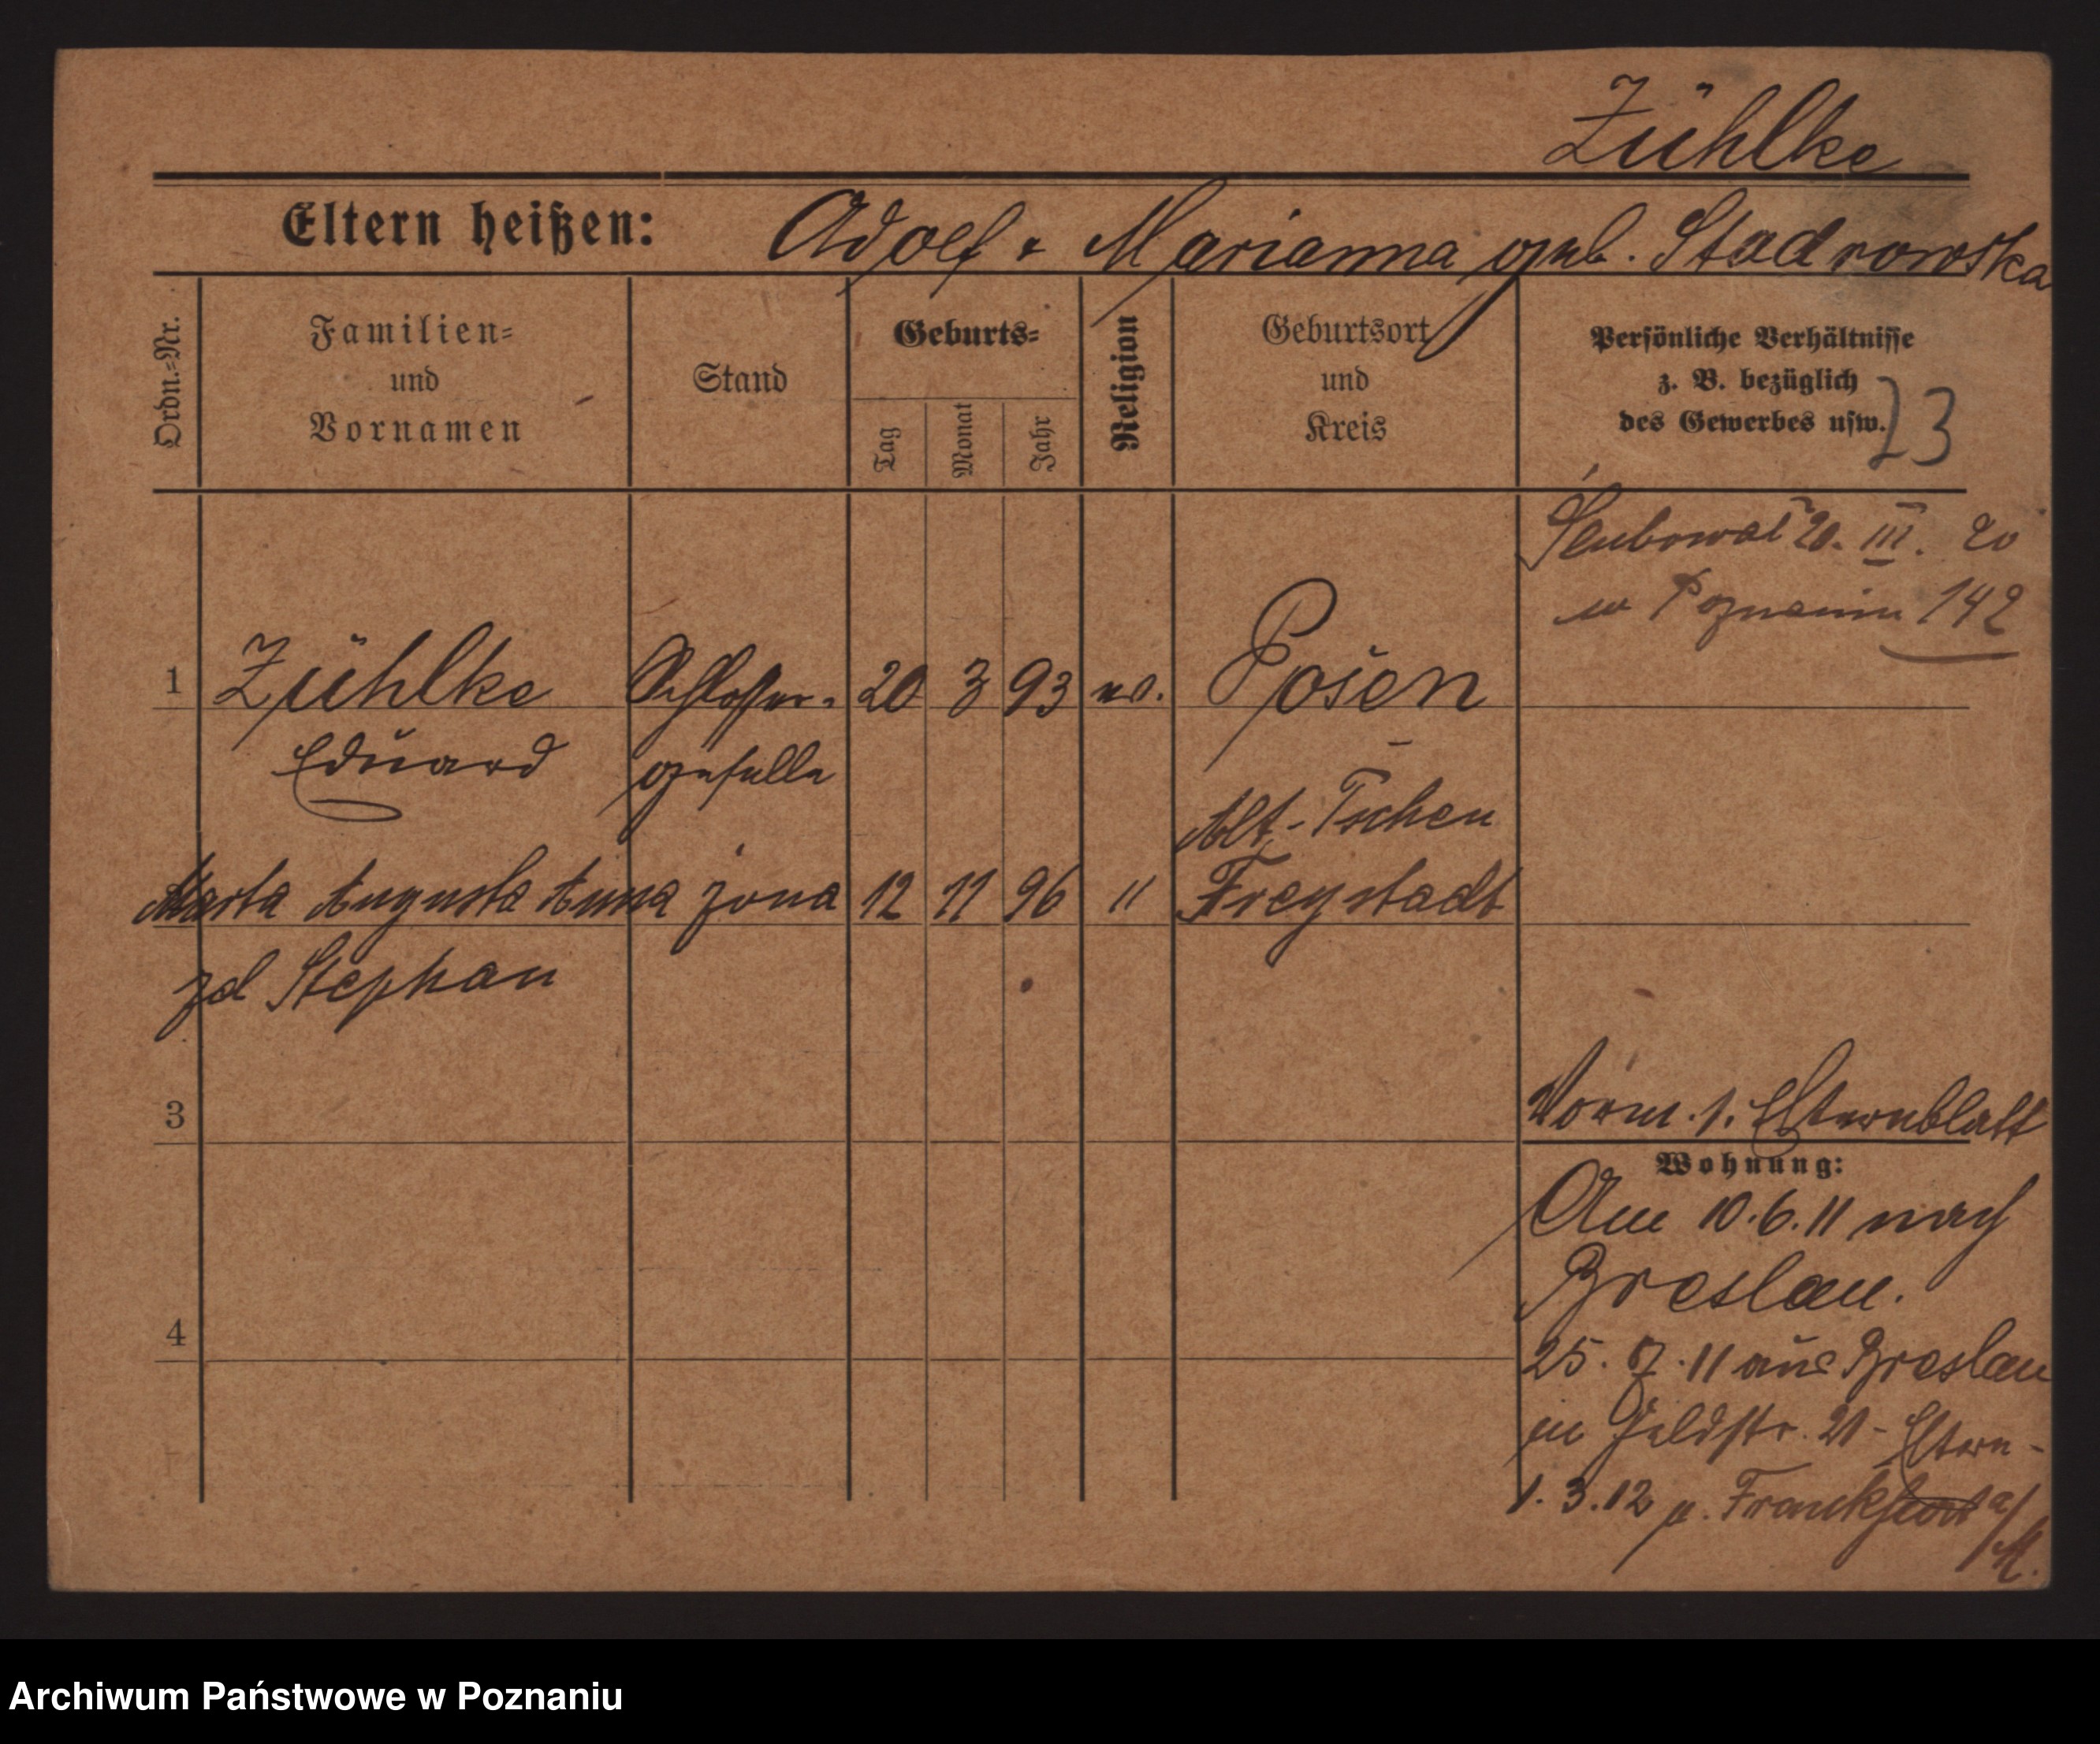 Zühlke
Eltern heißen: Adolf + Marianna geb. Stadrowska
Ordn.=Nr.
Familien= und Vornamen
Stand
Geburts=
Tag
Monat
Jahr
Religion
Geburtsort und Kreis
Persönliche Verhältnisse
z. B. bezüglich
des Gewerbes usw.
23
Ślubował 20. III. 20
w Poznaniu 142
1 Zühlke Schlosser- 20 3 93 ev. Posen
Eduard geselle
Alt-Tschen
Marta Augusta Anna żona 12 11 96 " Freystadt
zd Stephan
3
Vorm. s. Elternblatt
Wohnung:
Am 10.6.11 nach
Breslau.
4
25. 7. 11 aus Breslau
in Feldstr. 21 - Eltern -
1. 3. 12 n. Frankfurt a/M.
Archiwum Państwowe w Poznaniu